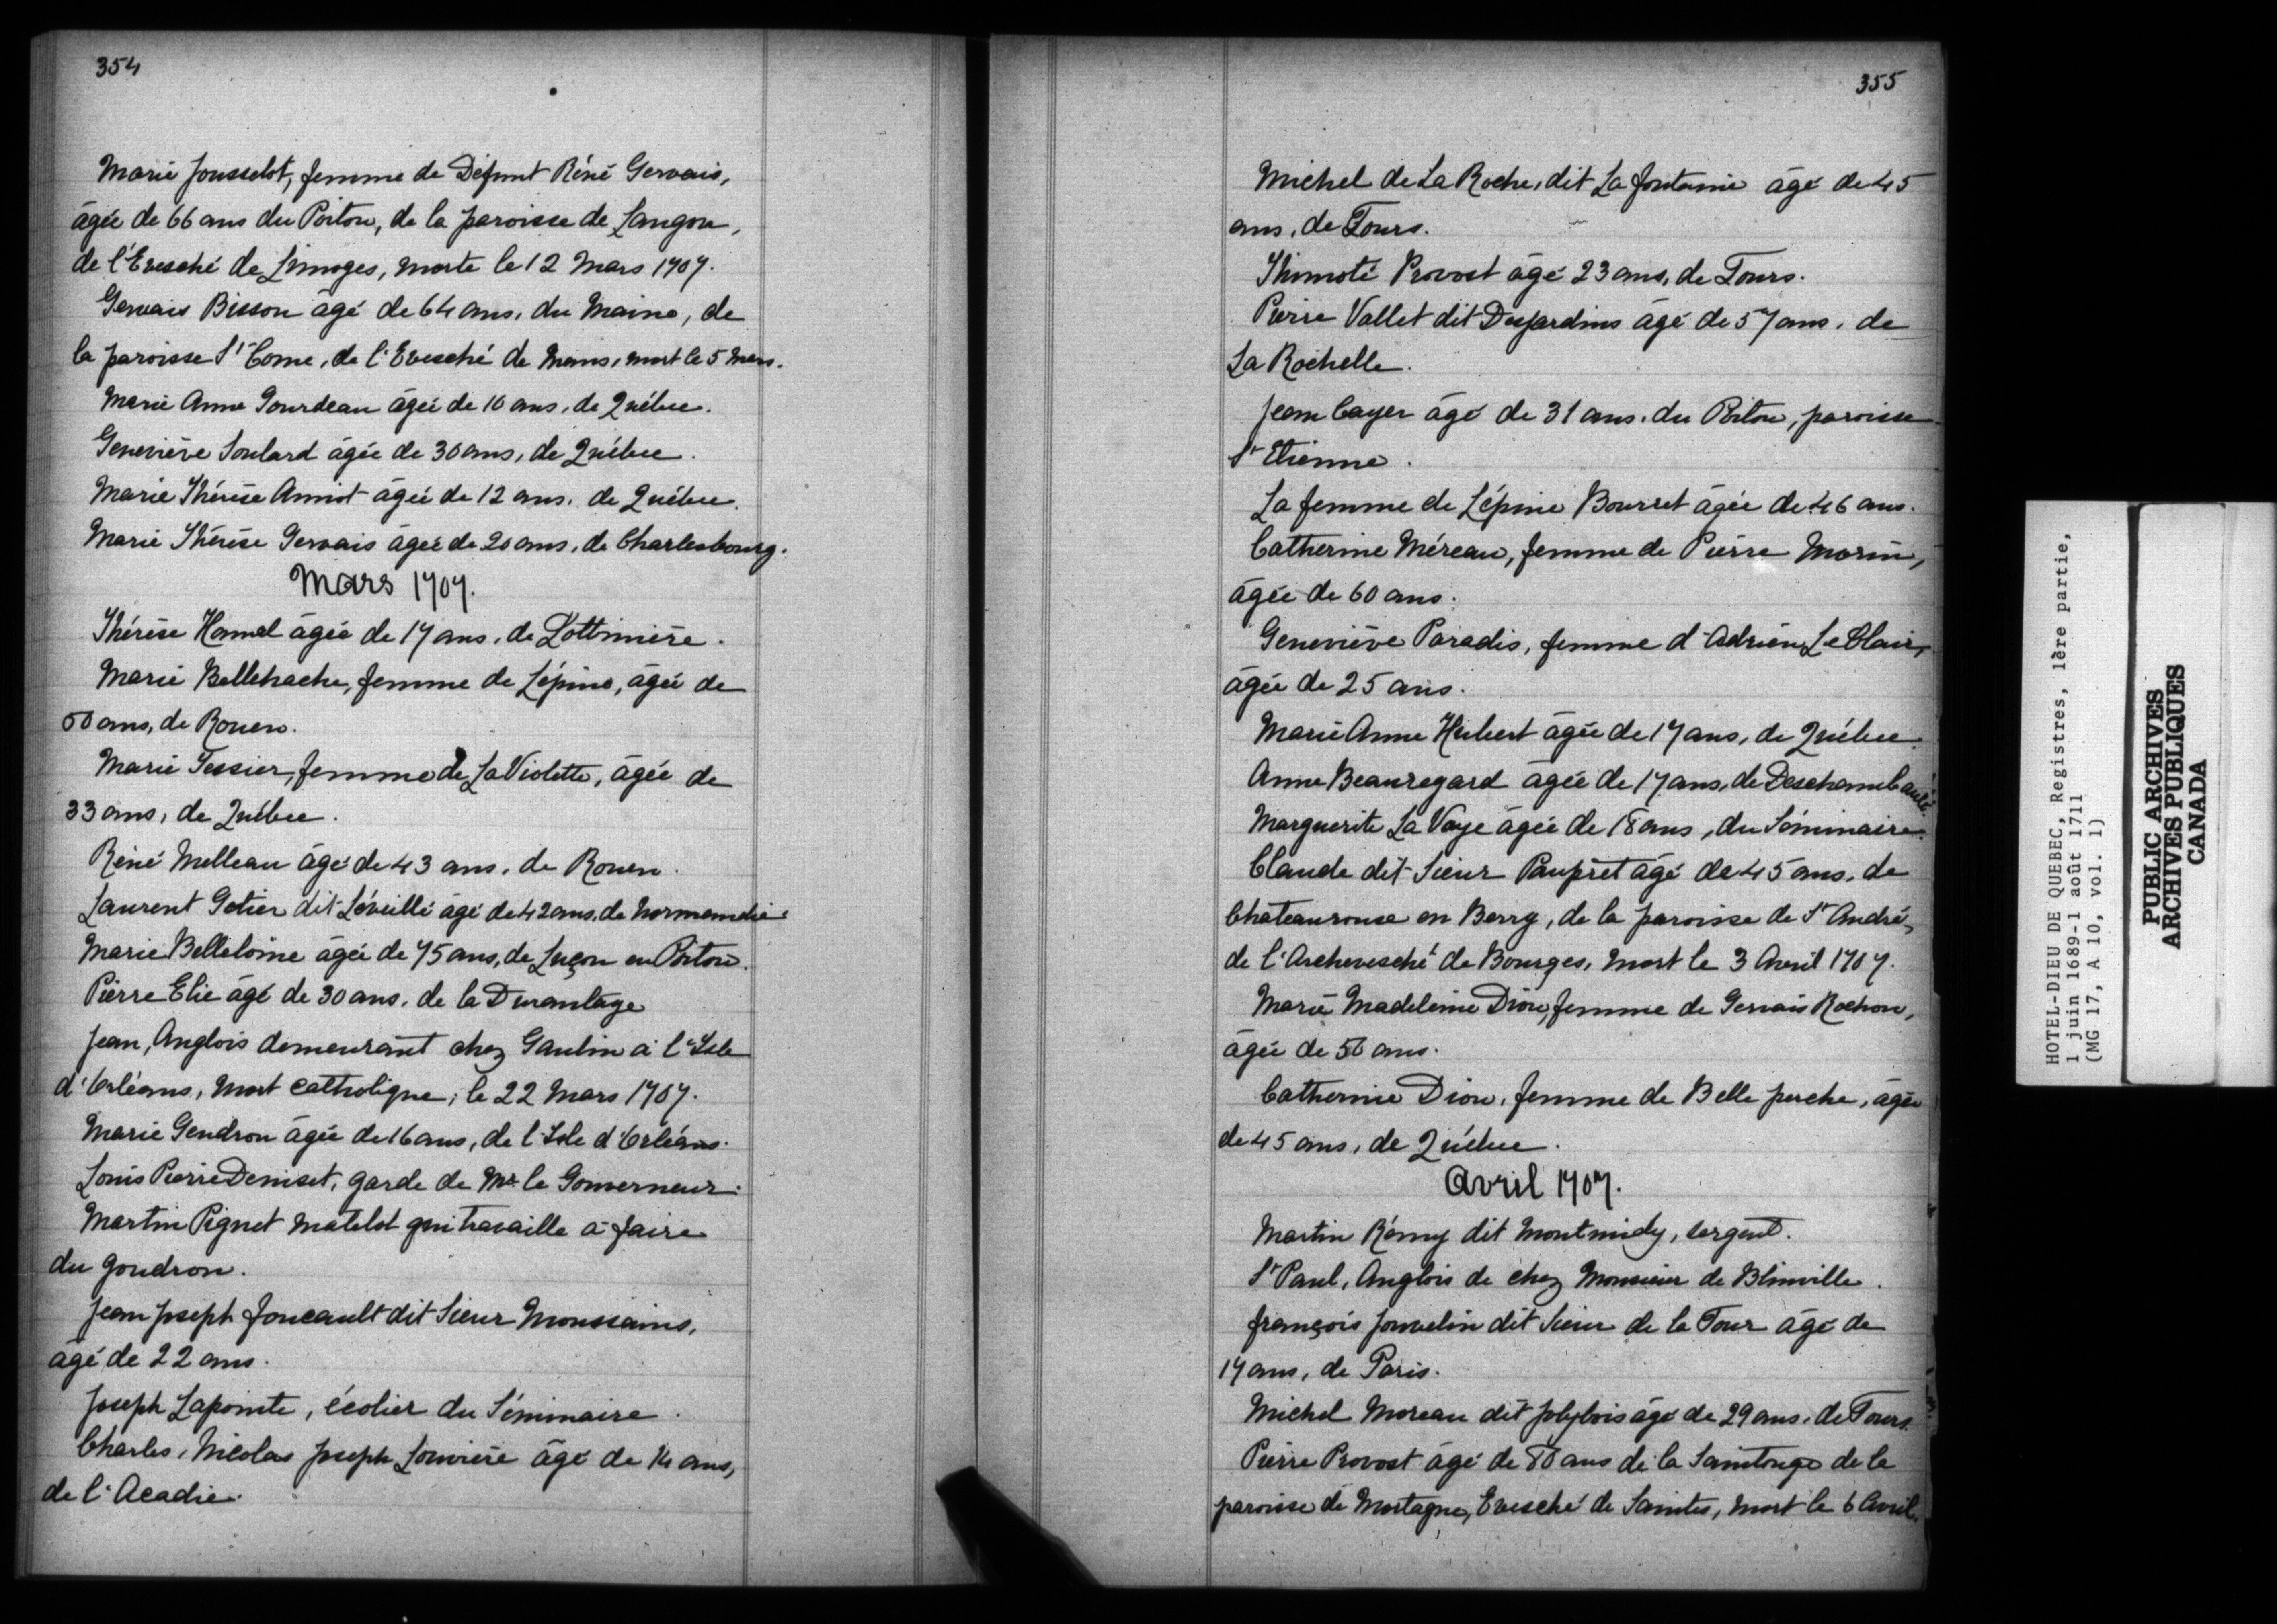 354
Marie Jousselot, femme de Défunt Réné Gervais,
âgée de 66 ans du Poitou, de la paroisse de Langon,
de l'Evesché de Limoges, morte le 12 Mars 1707.
Gervais Bisson âgé de 64 ans, du Maine, de
la paroisse St Come, de l'Evesché de Mans, mort le 5 Mars.
Marie Anne Gourdeau âgée de 10 ans, de Québec.
Geneviève Soulard âgée de 30 ans, de Québec.
Marie Thérèse Amiot âgée de 12 ans, de Québec.
Marie Thérèse Gervais âgée de 20 ans, de Charlesbourg.
Mars 1707.
Thérèse Hamel âgée de 17 ans, de Lotbinière.
Marie Bellehache, femme de Lépine, âgée de
50 ans, de Rouen.
Marie Tessier, femme de La Violette, âgée de
33 ans, de Québec.
Réné Melleau âgé de 43 ans, de Rouen.
Laurent Gotier dit Léveillé âgé de 42 ans, de Normandie.
Marie Belleloine âgée de 75 ans, de Luçon en Poitou.
Pierre Elie âgé de 30 ans, de la Durantage
Jean, Anglois demeurant chez Gaulin à l'Isle
d'Orléans, mort catholique, le 22 Mars 1707.
Marie Gendron âgée de 16 ans, de l'Isle d'Orléans.
Louis Pierre Deniset, garde de Mr. le Gouverneur.
Martin Pignet matelot qui travaille à faire
du goudron.
Jean Joseph Foucault dit Sieur Moussains,
âgé de 22 ans.
Joseph Lapointe, écolier du Séminaire.
Charles, Nicolas Joseph Louvière âgé de 14 ans,
de l'Acadie.
355
Michel de La Roche, dit La fontaine âgé de 45
ans, de Tours.
Thimoté Provost âgé 23 ans, de Tours.
Pierre Vallet dit Desjardins âgé de 57 ans, de
La Rochelle.
Jean Cayer âgé de 31 ans, du Poitou, paroisse
St Etienne.
La femme de Lépine Bourret âgée de 46 ans.
Catherine Méreau, femme de Pierre Morin,
âgée de 60 ans.
Geneviève Paradis, femme d'Adrien LeClair,
âgée de 25 ans.
Marie Anne Hubert âgée de 17 ans, de Québec.
Anne Beauregard âgée de 17 ans, de Deschambault.
Marguerite La Voye âgée de 18 ans, du Séminaire.
Claude dit Sieur Paupret âgé de 45 ans, de
Chateaurouse en Berry, de la paroisse de St André,
de l'Archevesché de Bourges, mort le 3 Avril 1707.
Marie Madeleine Dion, femme de Gervais Rochon,
âgée de 50 ans.
Catherine Dion, femme de Belle perche, âgée
de 45 ans, de Québec.
Avril 1707.
Martin Rémy dit Montmidy, sergent.
St Paul, Anglois de chez Monsieur de Blinville.
François Jouvelin dit Sieur de la Tour âgé de
17 ans, de Paris.
Michel Moreau dit Jolybois âgé de 29 ans, de Tours.
Pierre Provost âgé de 80 ans de la Saintonge de la
paroisse de Mortagne, Evesché de Saintes, mort le 6 Avril.
HOTEL-DIEU DE QUEBEC, Registres, 1ère partie,
1 juin 1689-1 août 1711
(MG 17, A 10, vol. 1)
PUBLIC ARCHIVES
ARCHIVES PUBLIQUES
CANADA